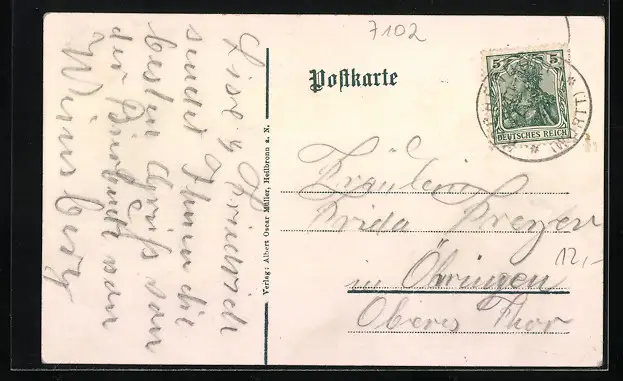 7102
Postkarte
5 5
DEUTSCHES REICH
(WÜRTT.)
Verlag: Albert Oscar Müller, Heilbronn a. N.
Fräulein
Frida Freyer
in Öhringen
Oberes Thor
12,-
sendet Ihnen die
besten Grüß von
der von
Weinsberg